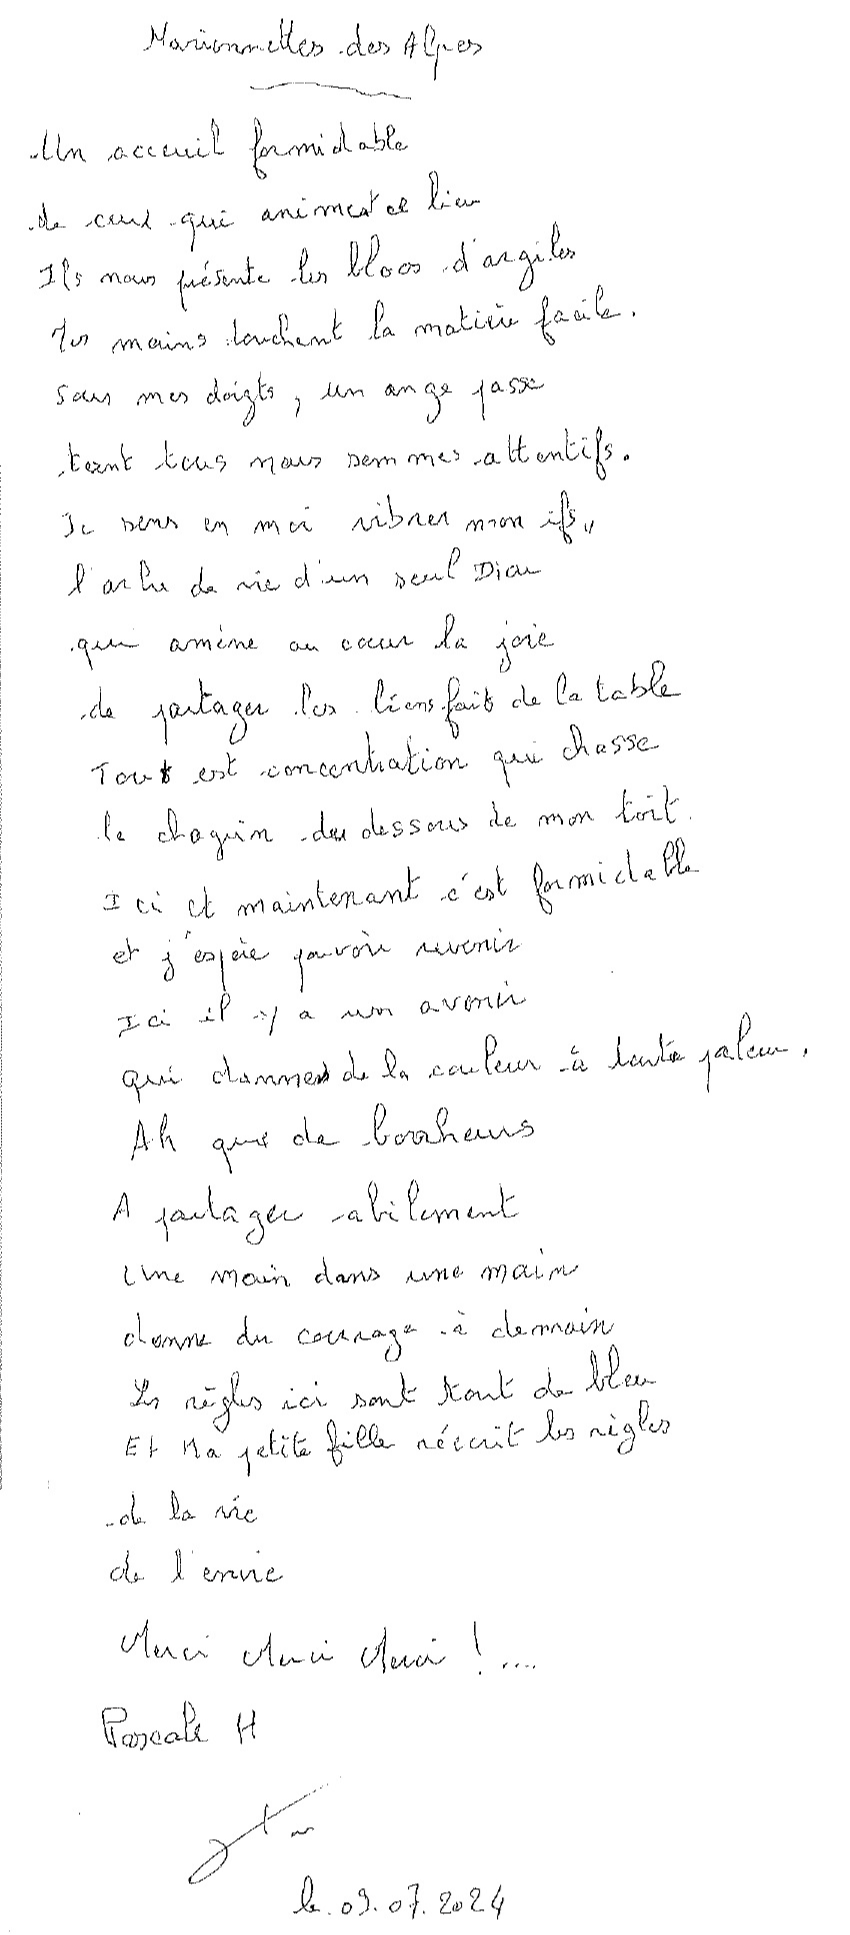 Marionnettes des Alpes
Un acceuil formidable
de ceux qui animent ce lieu
Ils nous présente les blocs d'argiles
Mes mains touchent la matière facile.
Sous mes doigts, un ange passe
tant tous nous sommes attentifs.
Je sens en moi vibrer mon ifs,
l'arbre de vie d'un seul Dieu
qui amène au cœur la joie
de partager les biensfait de la table
Tout est concentration qui chasse
le chagrin du dessous de mon toît.
Ici et maintenant c'est formidable
et j'espère pouvoir revenir
Ici il y a un avenir
qui donnes de la couleur à toute paleur.
Ah que de bonheurs
A partager abilement
Une main dans une main
donne du courage à demain
Les règles ici sont tout de bleu
Et Ma petite fille réécrit les règles
de la vie
de l'envie
Merci Merci Merci !....
Pascale H
le 09.07.2024